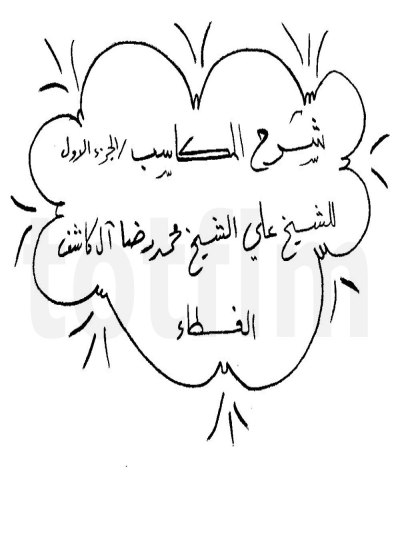 شرح المكاسب / الجزء الاول
للشيخ علي الشيخ محمد رضا آل كاشف
الغطاء